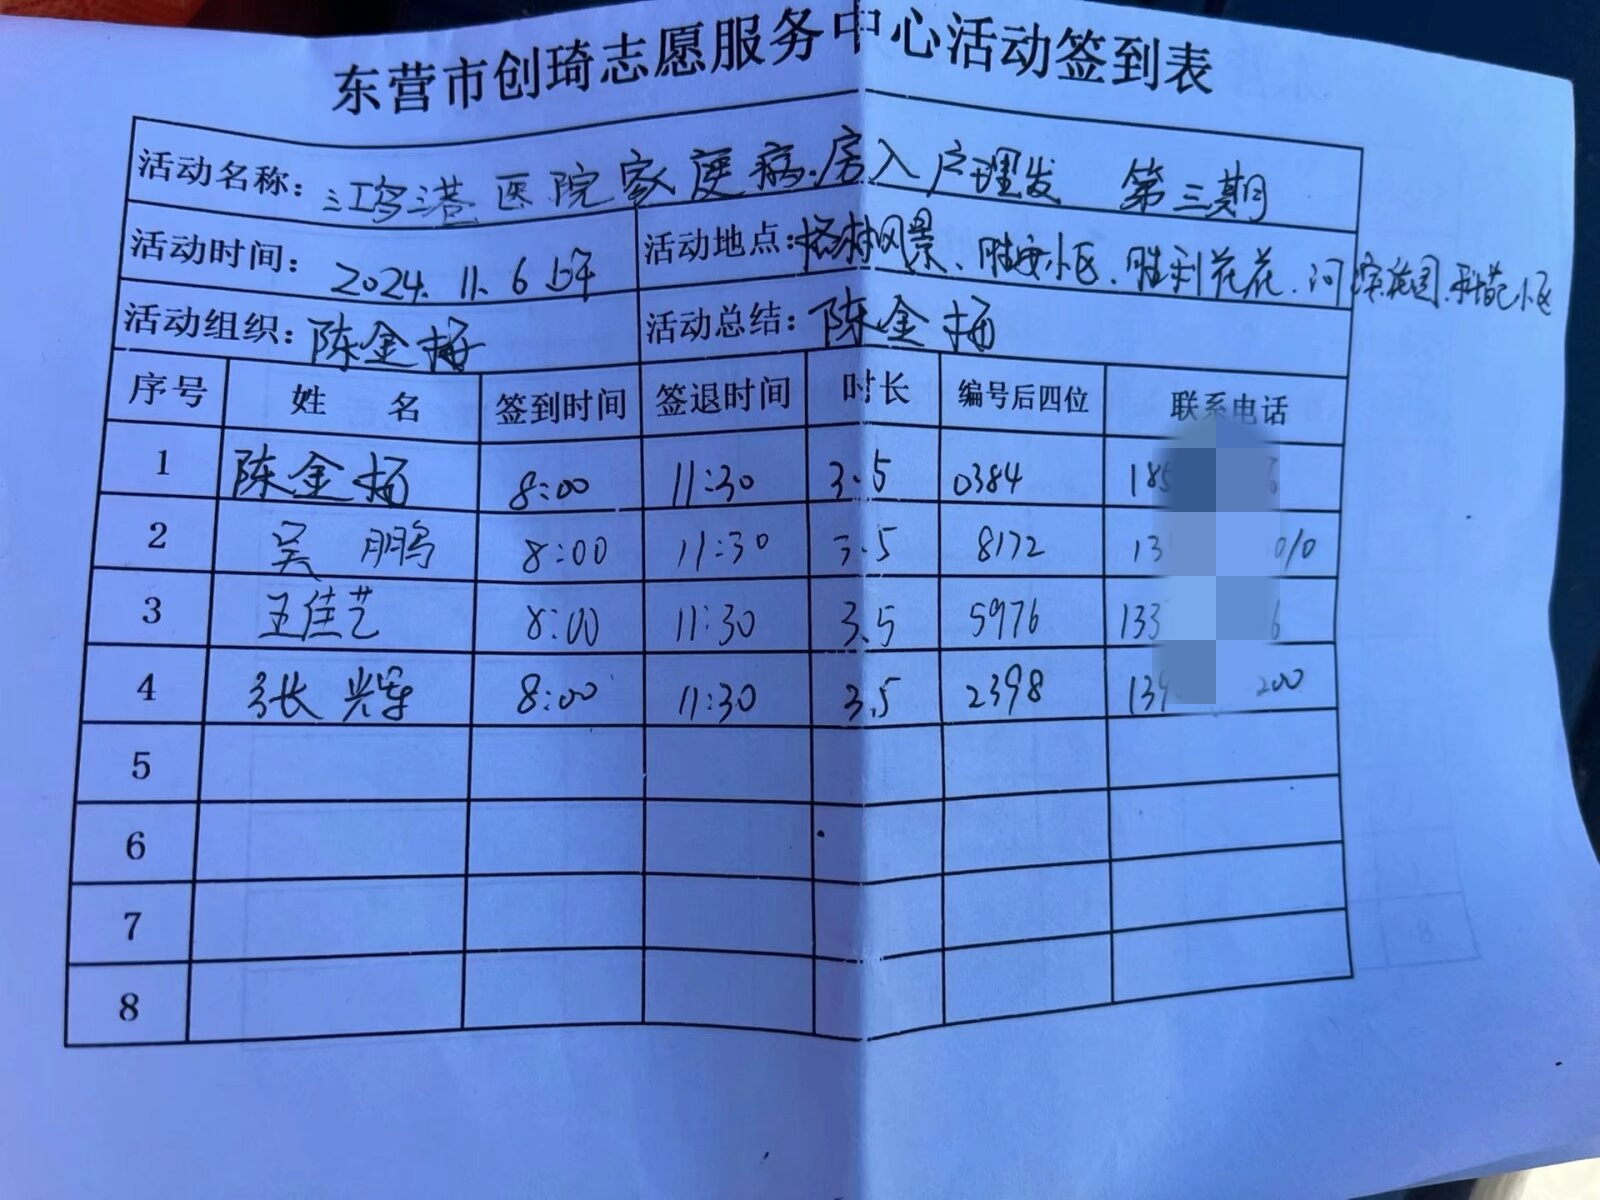 东营市创琦志愿服务中心活动签到表
活动名称: 鸿港医院家庭病房入户理发 第三期
活动时间: 2024.11.6上午 活动地点: 格林风景、胜安小区、胜利花苑、河滨花园、小区
活动组织: 陈金杨 活动总结: 陈金杨
序号 姓名 签到时间 签退时间 时长 编号后四位 联系电话
1 陈金杨 8:00 11:30 3.5 0384 185 6
2 吴鹏 8:00 11:30 3.5 8172 13 010
3 王佳艺 8:00 11:30 3.5 5976 133 6
4 张辉 8:00 11:30 3.5 2398 139 200
5
6
7
8